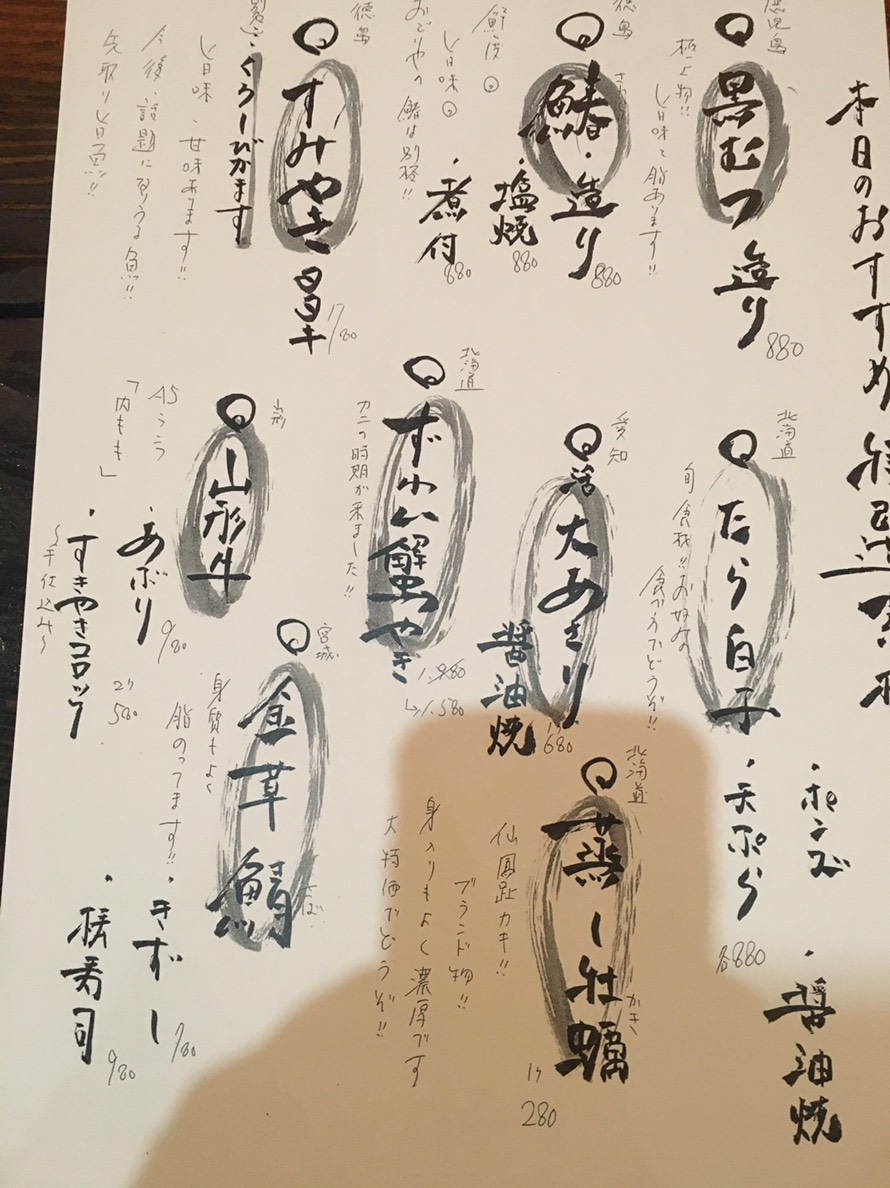 本日のおすすめ
鹿児島
黒むつ造り
880
極上物!!
旨味と脂あります!!
徳島
鰆・造り
さわら
880
・塩焼
880
・煮付
680
鮮度◎
旨味◎
おどりやの鰆は別格!!
徳島
すみやき
780
くろしびかます
旨味、甘味あります!!
今後、話題に
先取り
北海道
たら白子
旬食材!!お好みな
食べ方でどうぞ!!
・ポンズ
・天ぷら
・醤油焼
各880
愛知
活大あさり
醤油焼
680
北海道
ずわい蟹やき
1.980
↳1.580
カニの時期が来ました!!
山形
山形牛
A5ランク
「内もも」
・あぶり
980
・すきやきコロッケ
〜手仕込み〜
2ケ
580
北海道
蒸し牡蠣
かき
1ケ
280
仙鳳趾カキ!!
ブランド物!!
身入りもよく濃厚です
大特価でどうぞ!!
宮城
金華鯖
さば
身質もよく
脂のってます!!
・きずし
780
・棒寿司
980